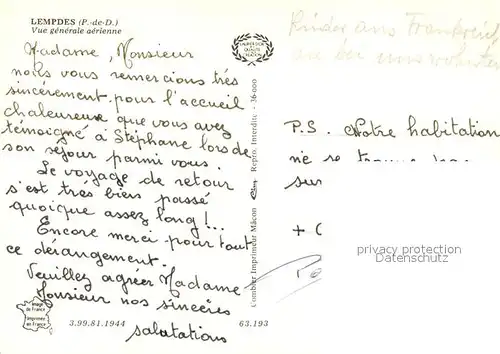 LEMPDES (P.-de-D.)
Vue générale aérienne
Madame, Monsieur
nous vous remercions très
sincèrement pour l'accueil
chaleureux que vous avez
témoigné à Stéphane lors de
son séjour parmi vous.
Le voyage de retour
s'est très bien passé
quoique assez long !...
Encore merci pour tout
ce dérangement.
Veuillez agréer Madame
Monsieur nos sincères
salutations
Image de France
Imprimée en France
3.99.81.1944
63.193
Combier Imprimeur Mâcon
Repror. Interdite - 36-000
Kinder aus Frankreich
die bei uns wohnten
P.S. Notre habitation
ne se
sur
+ C
privacy protection
Datenschutz